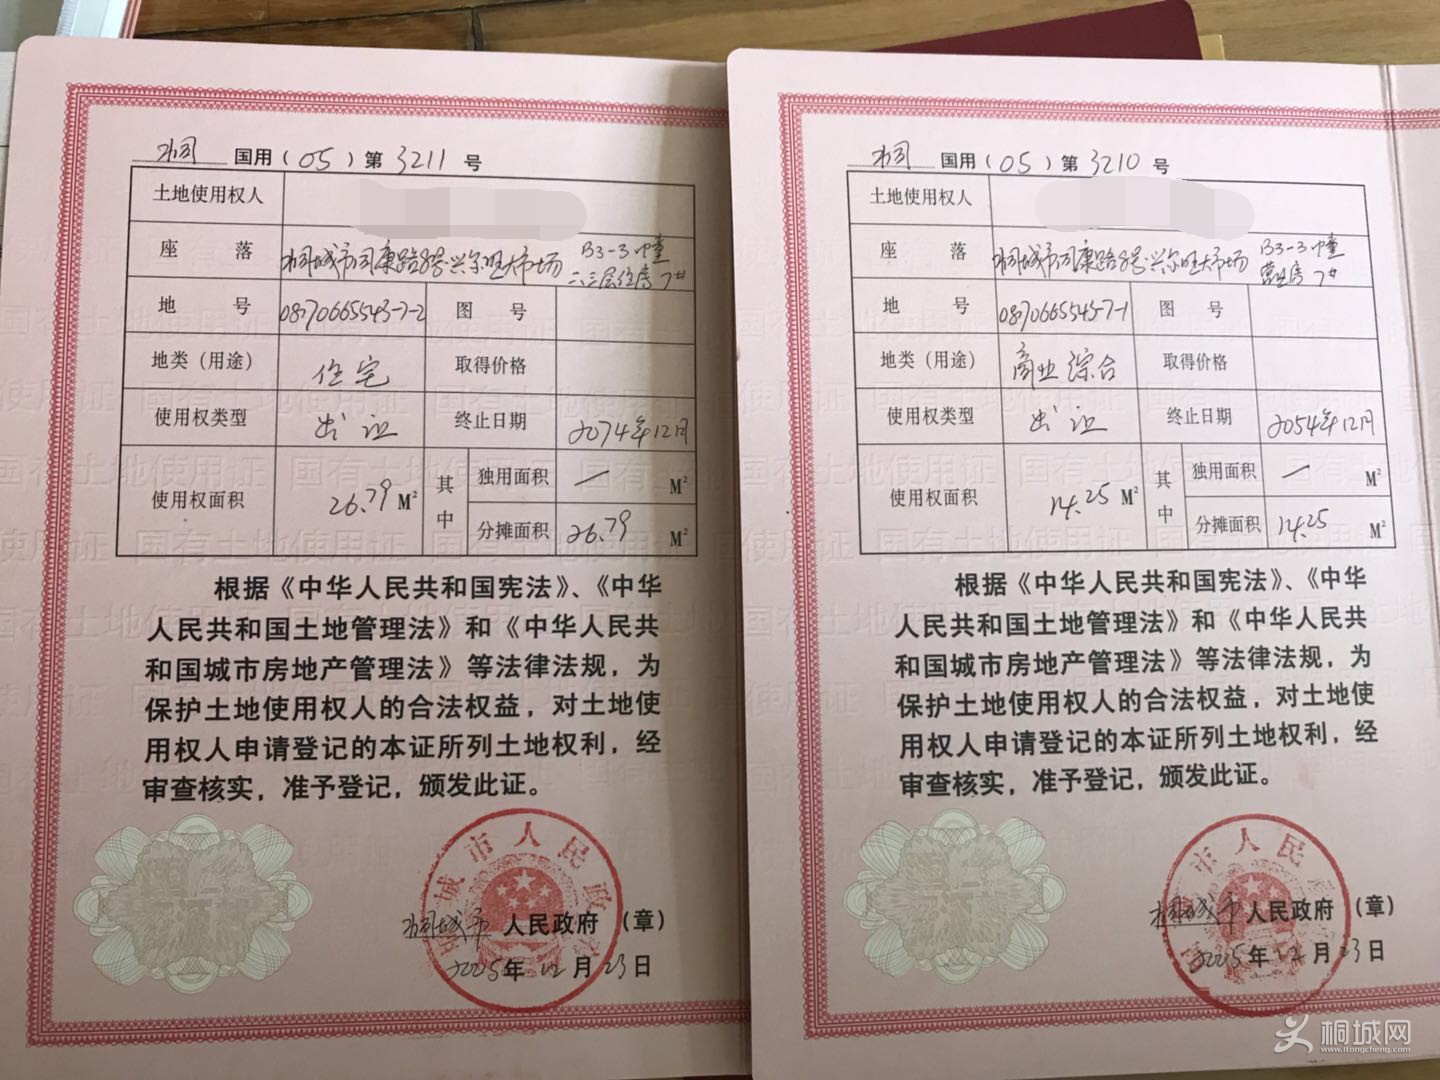 桐 国用（05）第 3211 号
土地使用权人
座 落 桐城市同康路8号兴尔旺大市场 B3-3幢
二、三层住房 7#
地 号 0870665543-7-2 图 号
地类（用途） 住宅 取得价格
使用权类型 出让 终止日期 2074年12月
使用权面积 26.79 M² 其中 独用面积 — M²
分摊面积 26.79 M²
根据《中华人民共和国宪法》、《中华
人民共和国土地管理法》和《中华人民共
和国城市房地产管理法》等法律法规，为
保护土地使用权人的合法权益，对土地使
用权人申请登记的本证所列土地权利，经
审查核实，准予登记，颁发此证。
桐城市 人民政府（章）
2005年12月23日
桐 国用（05）第 3210 号
土地使用权人
座 落 桐城市同康路8号兴尔旺大市场 B3-3幢
营业房 7#
地 号 0870665543-7-1 图 号
地类（用途） 商业综合 取得价格
使用权类型 出让 终止日期 2054年12月
使用权面积 14.25 M² 其中 独用面积 — M²
分摊面积 14.25 M²
根据《中华人民共和国宪法》、《中华
人民共和国土地管理法》和《中华人民共
和国城市房地产管理法》等法律法规，为
保护土地使用权人的合法权益，对土地使
用权人申请登记的本证所列土地权利，经
审查核实，准予登记，颁发此证。
桐城市 人民政府（章）
2005年12月23日
桐城网
www.itongcheng.com